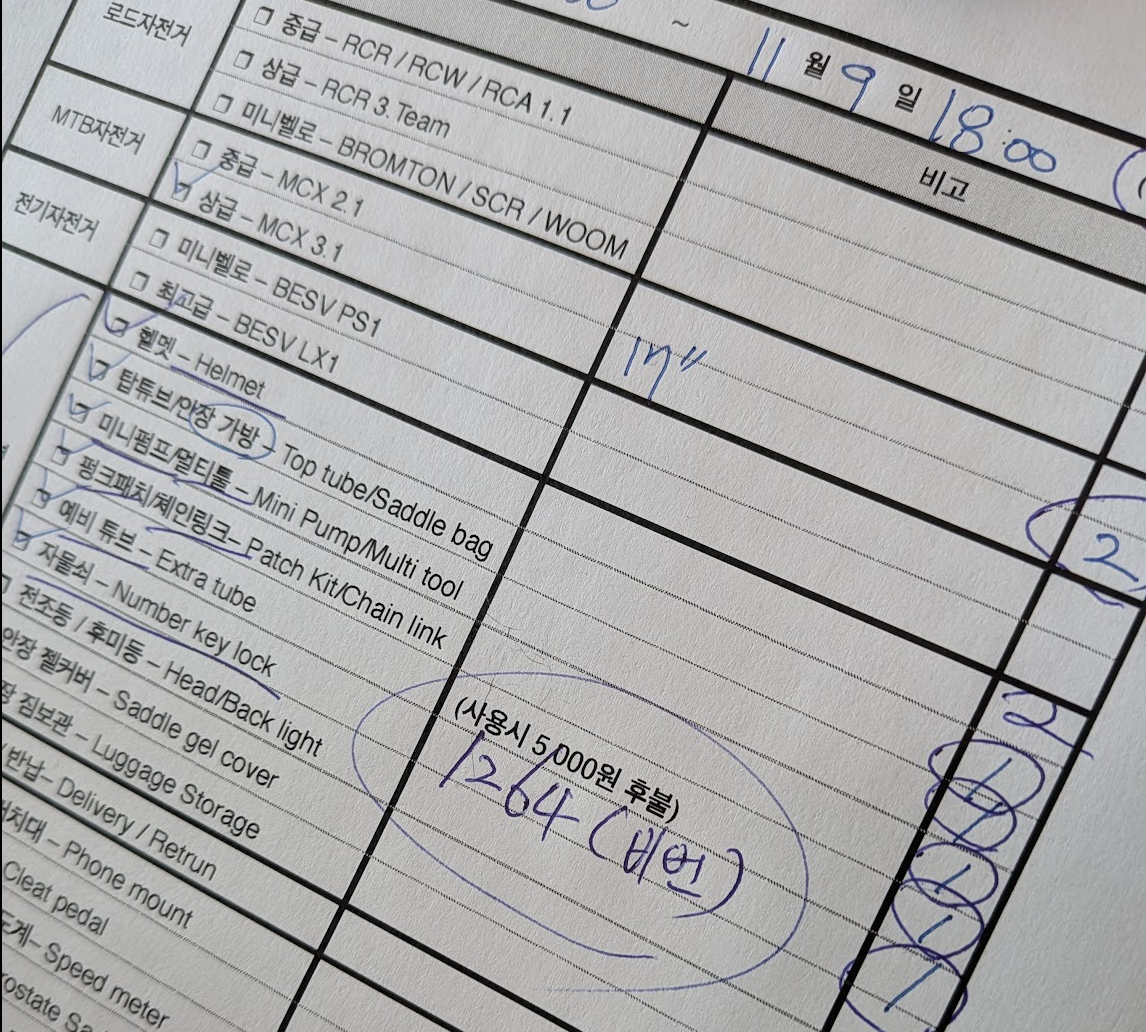 ~ 11 월 9 일 18:00
로드자전거
❐ 중급 – RCR / RCW / RCA 1.1
❐ 상급 – RCR 3 Team
❐ 미니벨로 – BROMTON / SCR / WOOM
비고
MTB자전거
❐ 중급 – MCX 2.1
❐ 상급 – MCX 3.1
17"
2
전기자전거
❐ 미니벨로 – BESV PS1
❐ 최고급 – BESV LX1
❐ 헬멧 – Helmet
2
❐ 탑튜브/안장 가방 – Top tube/Saddle bag
1
❐ 미니펌프/멀티툴 – Mini Pump/Multi tool
1
❐ 펑크패치/체인링크– Patch Kit/Chain link
1
❐ 예비 튜브 – Extra tube
(사용시 5,000원 후불)
1
❐ 자물쇠 – Number key lock
1264 (비번)
1
❐ 전조등 / 후미등 – Head/Back light
안장 젤커버 – Saddle gel cover
짐보관 – Luggage Storage
/반납– Delivery / Retrun
거치대 – Phone mount
Cleat pedal
도계– Speed meter
rostate Sad